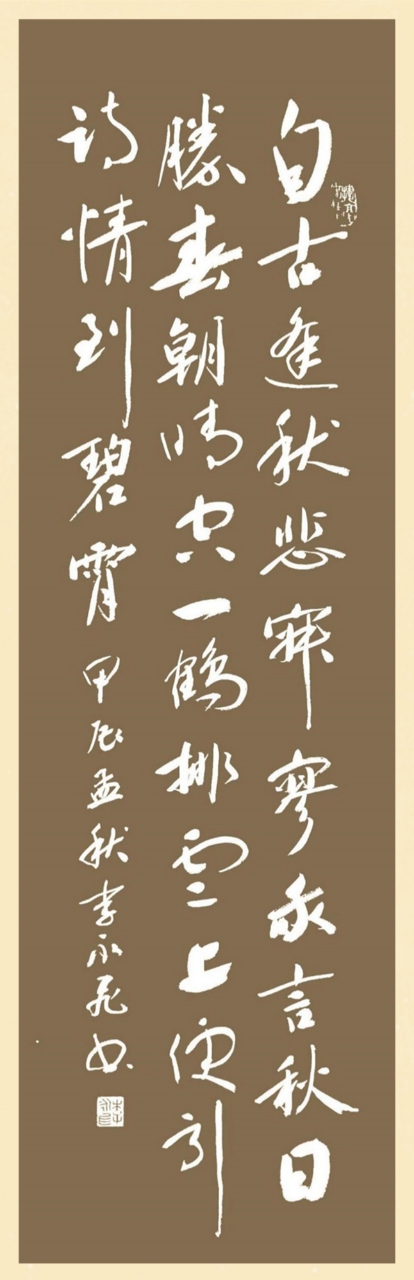 自古逢秋悲寂寥我言秋日
勝春朝晴空一鶴排雲上便引
詩情到碧霄 甲辰孟秋李永飛書